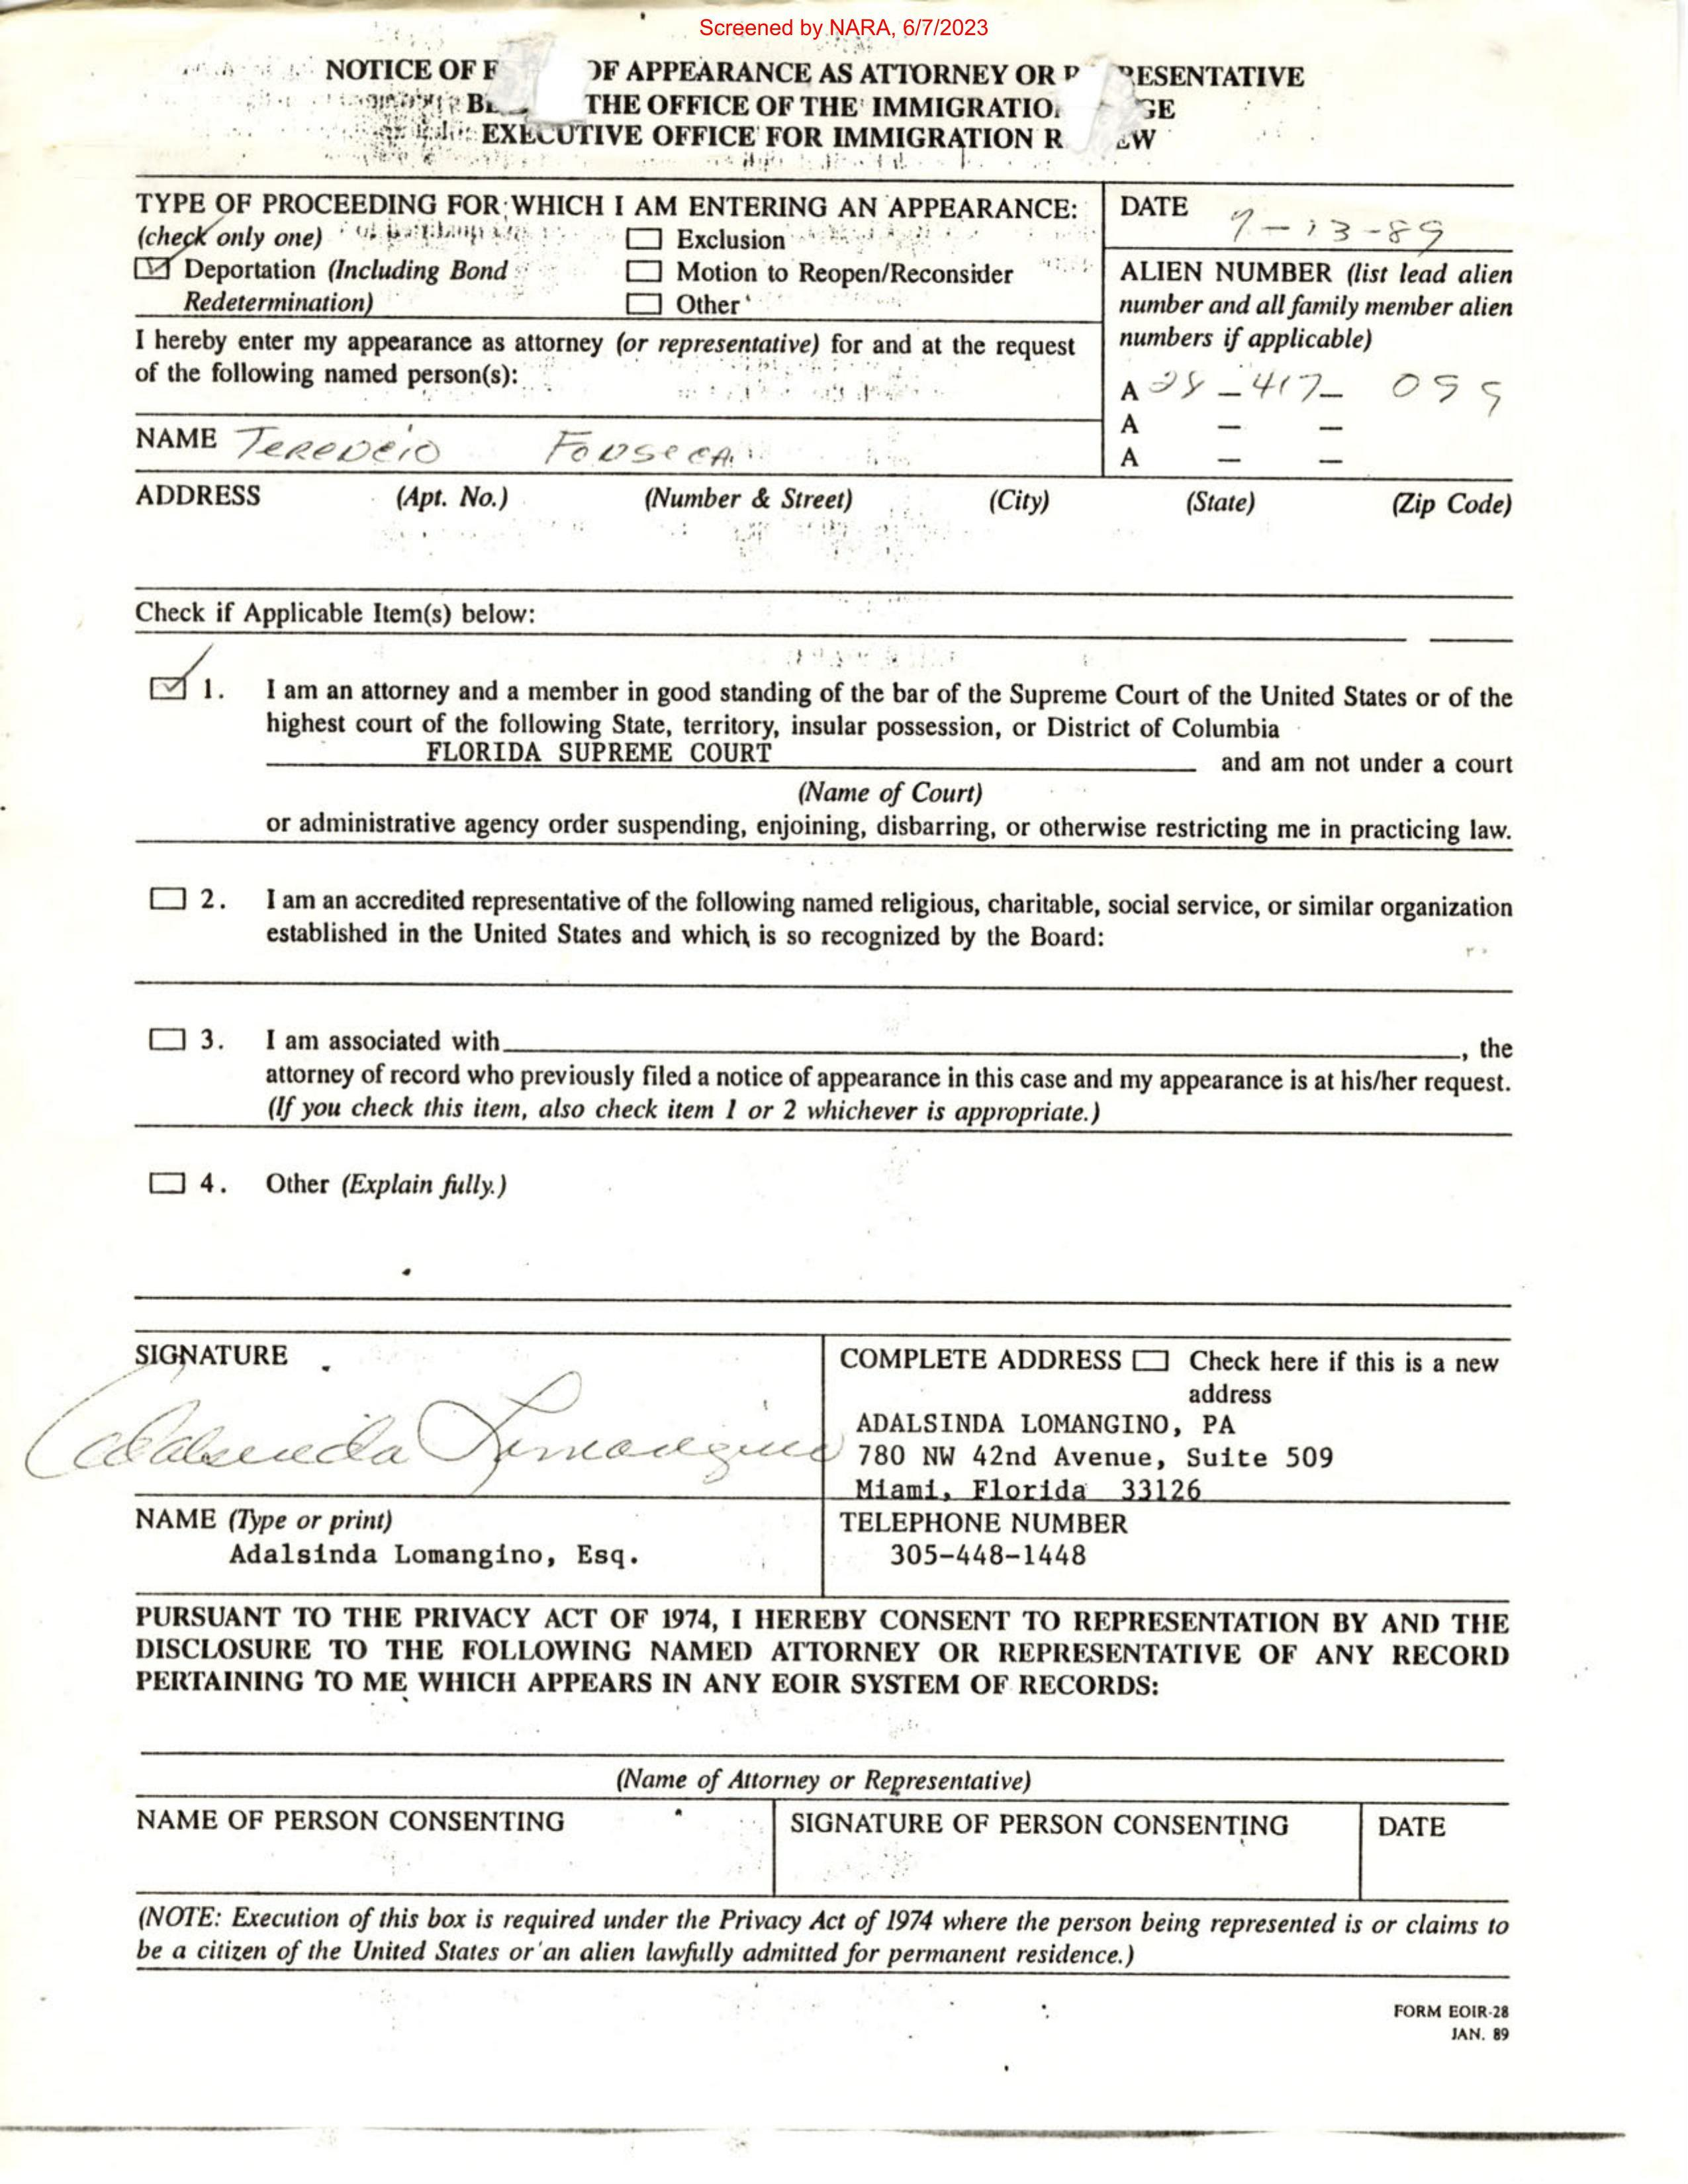 Screened by NARA, 6/7/2023
NOTICE OF OF APPEARANCE AS ATTORNEY OR
THE OFFICE OF THE
EXECUTIVE OFFICE FOR IMMIGRATION
TYPE OF PROCEEDING FOR WHICH I AM ENTERING AN APPEARANCE:
(check only one)
Exclusion
Deportation (Including Bond
Motion to Reopen/Reconsider
Redetermination)
Other
DATE
-13-89
ALIEN NUMBER (list lead alien
number and all family member alien
numbers if applicable)
A 28-417-
A - -
A - -
I hereby enter my appearance as attorney (or representative) for and at the request
of the following named person(s):
NAME FONSECA
ADDRESS (Apt. No.) (Number & Street) (City) (State) (Zip Code)
Check if Applicable Item(s) below:
1. I am an attorney and a member in good standing of the bar of the Supreme Court of the United States or of the
highest court of the following State, territory, insular possession, or District of Columbia
FLORIDA SUPREME COURT and am not under a court
(Name of Court)
or administrative agency order suspending, enjoining, disbarring, or otherwise restricting me in practicing law.
2. I am an accredited representative of the following named religious, charitable, social service, or similar organization
established in the United States and which is so recognized by the Board:
3. I am associated with , the
attorney of record who previously filed a notice of appearance in this case and my appearance is at his/her request.
(If you check this item, also check item 1 or 2 whichever is appropriate.)
4. Other (Explain fully.)
SIGNATURE
Adalsinda Lomangino
COMPLETE ADDRESS Check here if this is a new
address
ADALSINDA LOMANGINO, PA
780 NW 42nd Avenue, Suite 509
Miami, Florida 33126
NAME (Type or print)
Adalsinda Lomangino, Esq.
TELEPHONE NUMBER
305-448-1448
PURSUANT TO THE PRIVACY ACT OF 1974, I HEREBY CONSENT TO REPRESENTATION BY AND THE
DISCLOSURE TO THE FOLLOWING NAMED ATTORNEY OR REPRESENTATIVE OF ANY RECORD
PERTAINING TO ME WHICH APPEARS IN ANY EOIR SYSTEM OF RECORDS:
(Name of Attorney or Representative)
NAME OF PERSON CONSENTING
SIGNATURE OF PERSON CONSENTING
DATE
(NOTE: Execution of this box is required under the Privacy Act of 1974 where the person being represented is or claims to
be a citizen of the United States or an alien lawfully admitted for permanent residence.)
FORM EOIR-28
JAN. 89